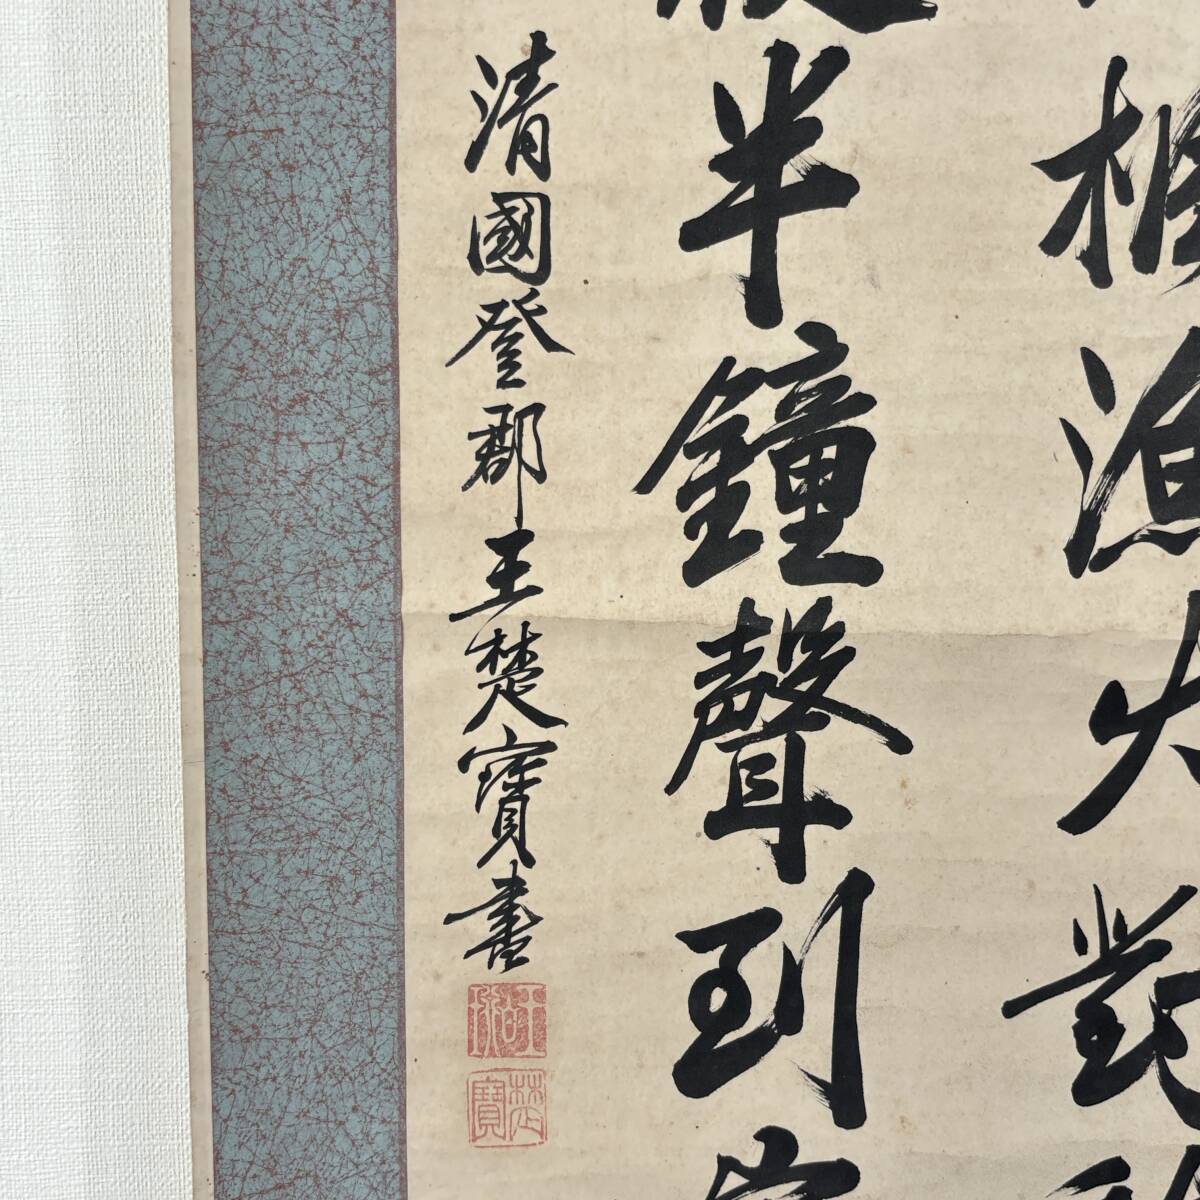 楓漁火對
半鐘聲到客
清國登郡王楚寶書
楚寶